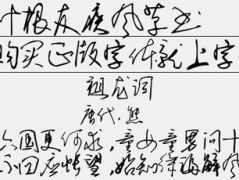 叶根友疾风草书
购买正版字体就上字
祖龙词
唐代·熊
六国更何求,童女童男问十
不回应怅望,始知徐福解风